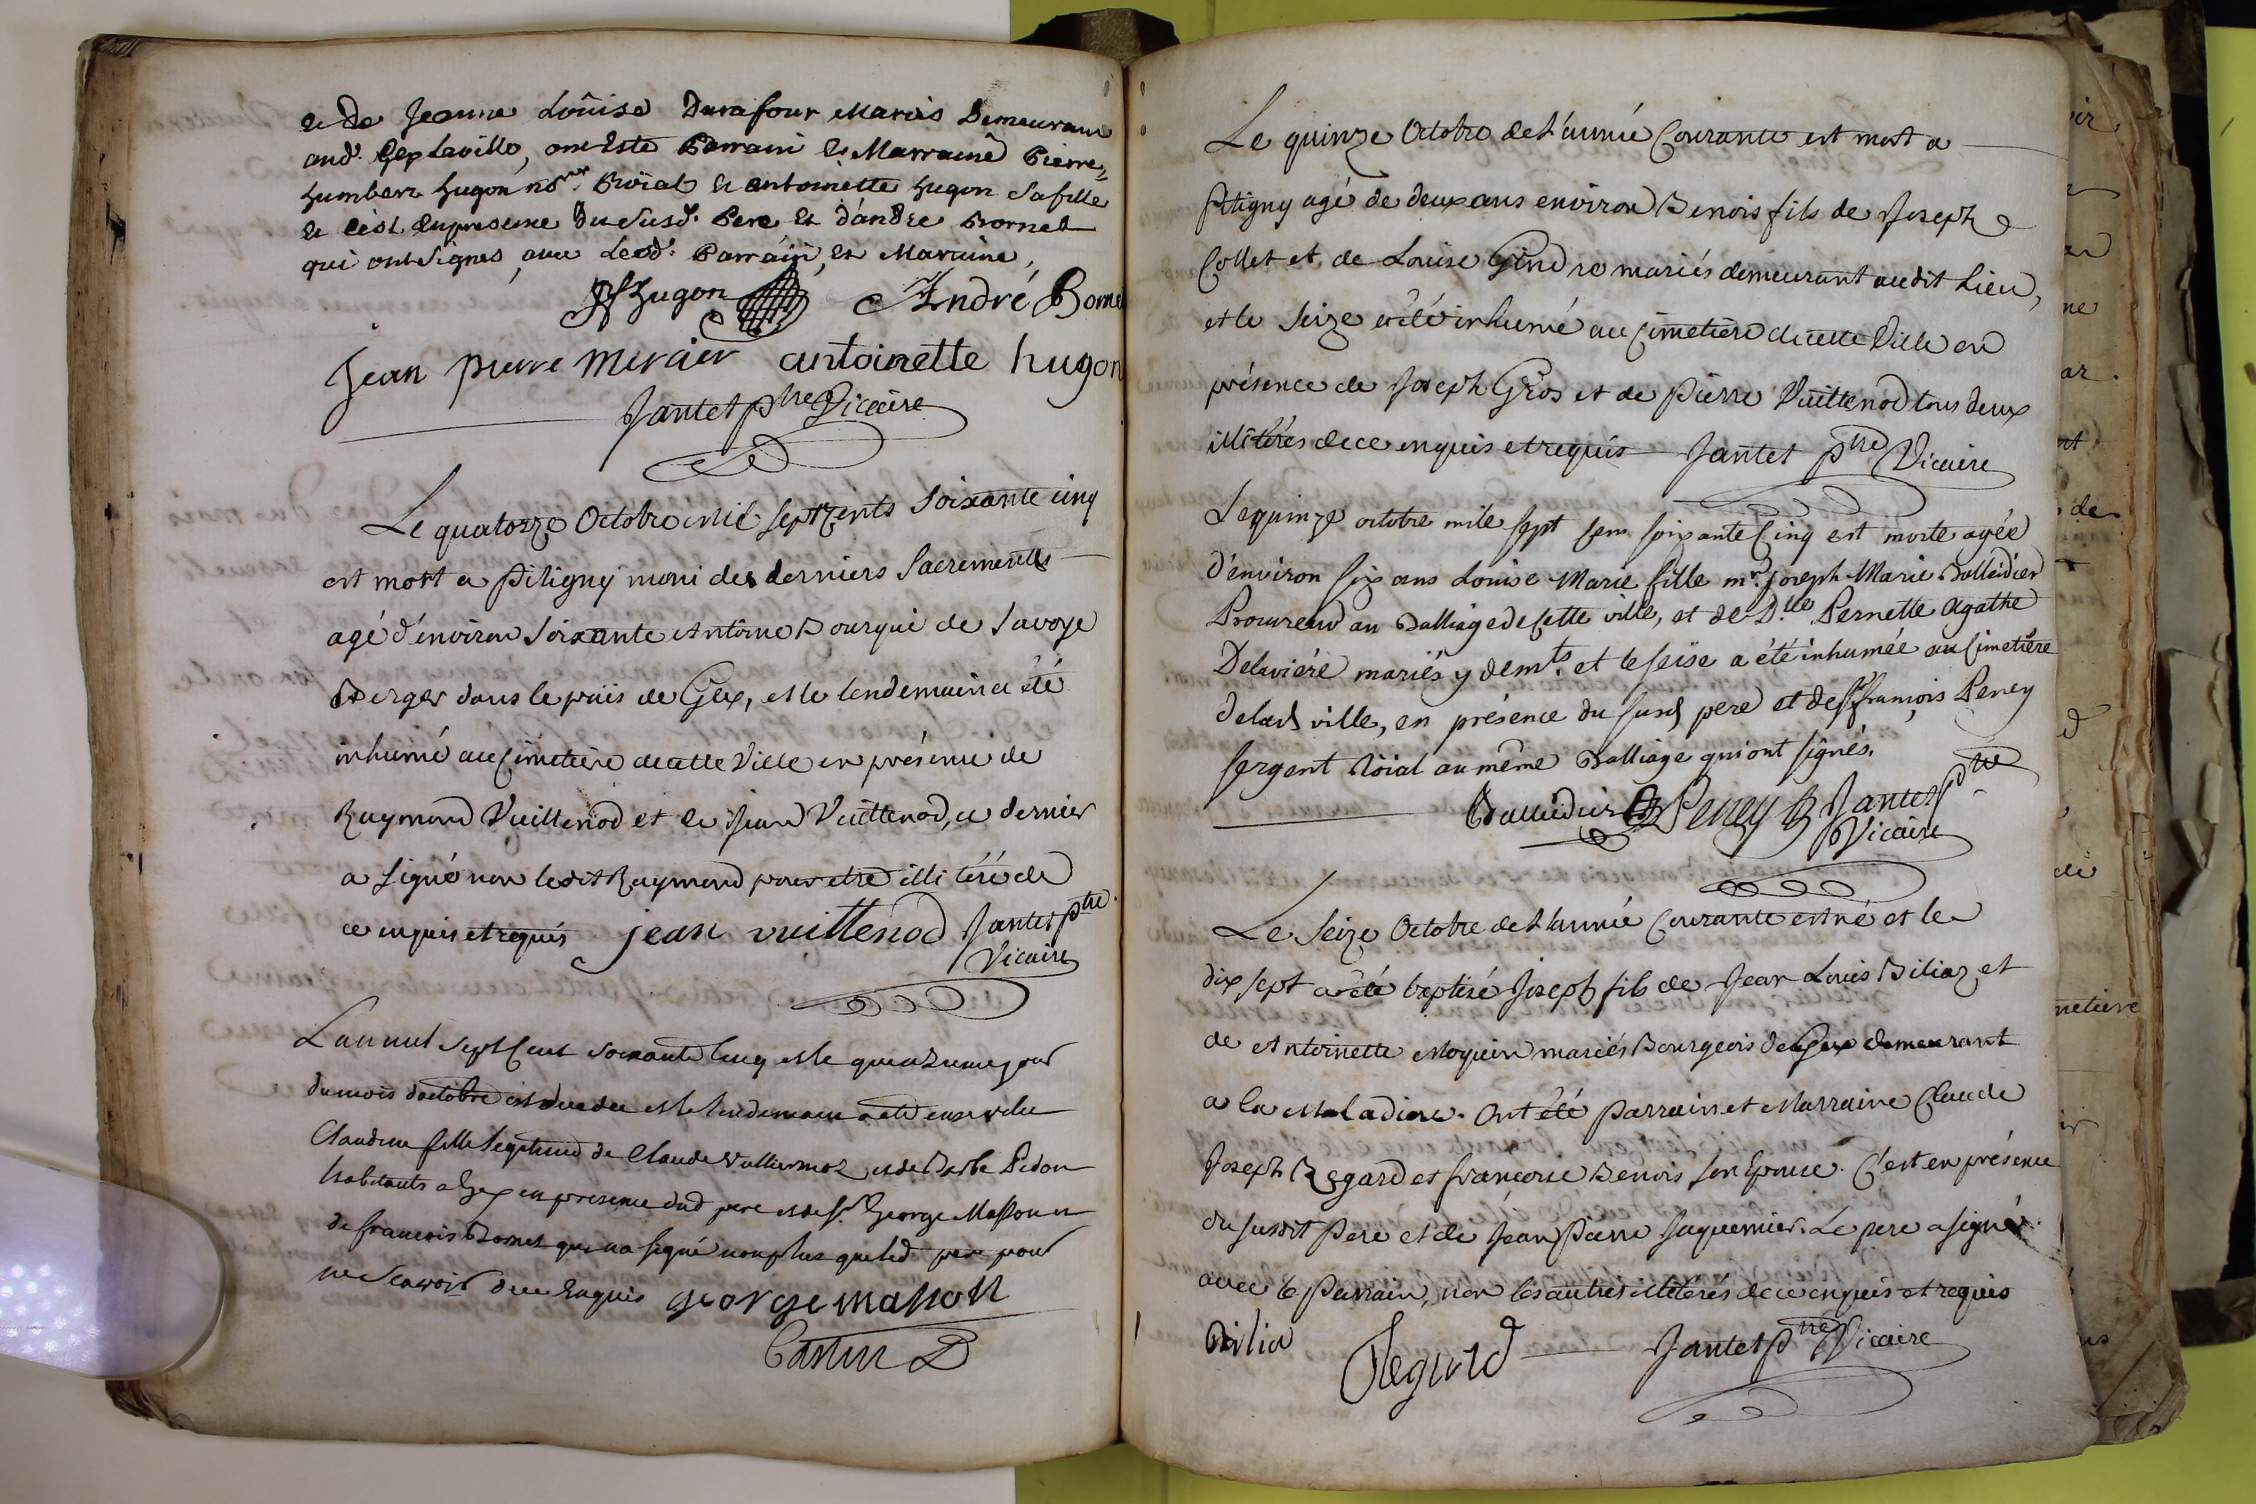 et de Jeanne Loüise Durafour Mariés Demeurant
aud. Gex Laville, ont Esté Parrain et Marraine Pierre
humbert hugon nore. Roïal et antoinette hugon Safille
et c'est Enpresence Du Susd. Pere et d'andre Bornet
qui ont Signés, avec Lesd. Parrain, et Maraine,
hugon André Borne
jean pierre mercier antoinette hugon
Jantet ptre Vicaire
Le quatorze Octobre mil sept cents soixante cinq
est mort a Pitigny muni des derniers Sacrements
agé d'environ soixante Antoine Bourqui de Savoye
Berger dans le païs de Gex, et le lendemain a été
inhumé au Cimetière de cette Ville en présence de
Raymond Vuittenod et de Jean Vuittenod, ce dernier
a signé non ledit Raymond pour etre illitéré de
ce enquis et requis jean vuittenod Jantet ptre
Vicaire
Lan mil sept Cent soixante Cinq et le quinzieme jour
du mois doctobre est decedee et le lendemain a été ensevelie
Claudine fille légitime de Claude Vulliermoz et de Barbe Pedon
habitants a Gex en presence dud pere et de Sr. George Masson et
de francois Bornet qui na signé non plus que led pere pour
ne scavoir de ce Enquis george masson
Castin
Le quinze Octobre de L'année Courante est mort a
Pitigny agé de deux ans environ Benois fils de Joseph
Collet et de Louise Gindre mariés demeurant audit Lieu,
et le seize a été inhumé au Cimetière de cette Ville en
présence de Joseph Gros et de Pierre Vuittenod tous deux
illitérés de ce enquis et requis Jantet ptre Vicaire
Le quinze octobre mile sept sen soixante Cinq est morte agée
d'environ six ans Louise Marie fille mr. Joseph Marie Balleidier
Procureur au Balliage de Cette ville, et de D.lle Pernette Agathe
Delaviére mariés y demts. et le seise a été inhumée au Cimetière
de lad ville, en présence du susd pere et de Sr françois Peney
sergent Roial au même Balliage qui ont signés.
Balleidier Peney Jantet ptre
Vicaire
Le Seize Octobre de L'année Courante est né et le
dix sept a été baptisé Joseph fils de Jean Louis Biliaz et
de Antoinette Moquin mariés Bourgeois de Gex demeurant
a la Maladiere. Ont été parrain et Marraine Claude
Joseph Regard et francoise Benois son Epouse. C'est en présence
du susdit Pere et de Jean Pierre Juquemier. Le pere a signé
avec le Parrain, non les autres illitérés de ce enquis et requis
Bilia Regard Jantet ptre Vicaire